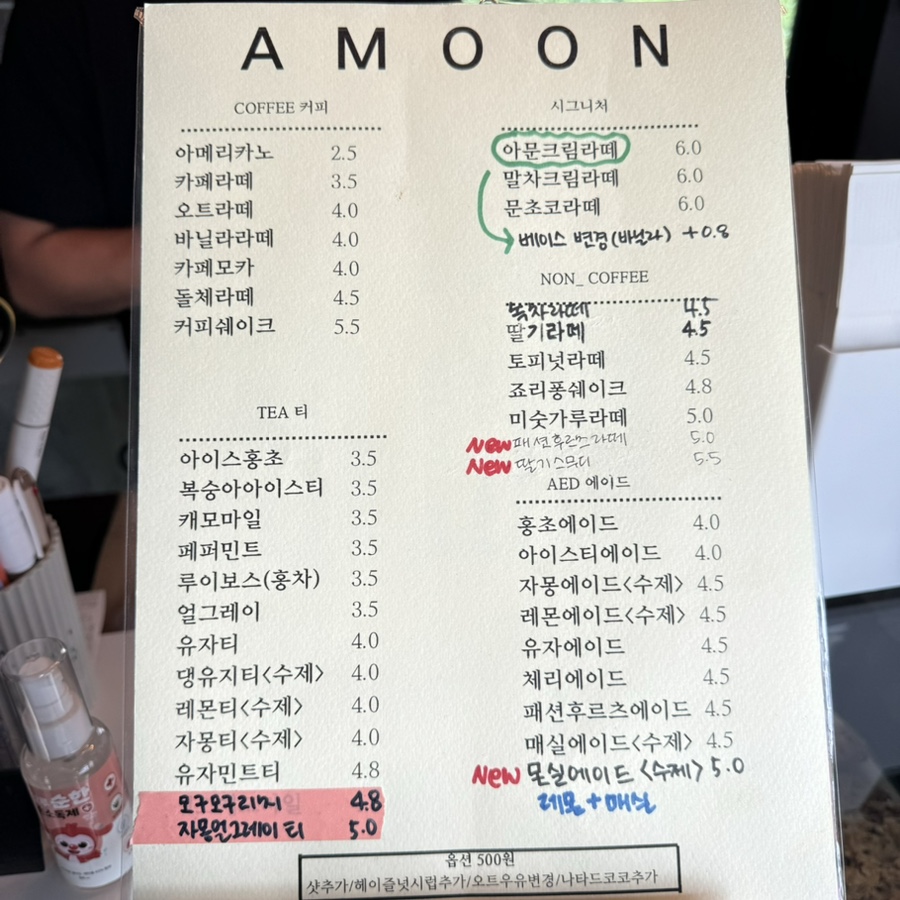 AMOON
COFFEE 커피
아메리카노 2.5
카페라떼 3.5
오트라떼 4.0
바닐라라떼 4.0
카페모카 4.0
돌체라떼 4.5
커피쉐이크 5.5
TEA 티
아이스홍초 3.5
복숭아아이스티 3.5
캐모마일 3.5
페퍼민트 3.5
루이보스(홍차) 3.5
얼그레이 3.5
유자티 4.0
댕유지티<수제> 4.0
레몬티<수제> 4.0
자몽티<수제> 4.0
유자민트티 4.8
4.8
자몽얼그레이티 5.0
시그니처
아문크림라떼 6.0
말차크림라떼 6.0
문초코라떼 6.0
베이스 변경(바닐라) +0.8
NON_ COFFEE
4.5
딸기라떼 4.5
토피넛라떼 4.5
죠리퐁쉐이크 4.8
미숫가루라떼 5.0
New 패션후르츠라떼 5.0
New 딸기스무디 5.5
AED 에이드
홍초에이드 4.0
아이스티에이드 4.0
자몽에이드<수제> 4.5
레몬에이드<수제> 4.5
유자에이드 4.5
체리에이드 4.5
패션후르츠에이드 4.5
매실에이드<수제> 4.5
New 몬실에이드 <수제> 5.0
레몬+매실
옵션 500원
샷추가/헤이즐넛시럽추가/오트우유변경/나타드코코추가